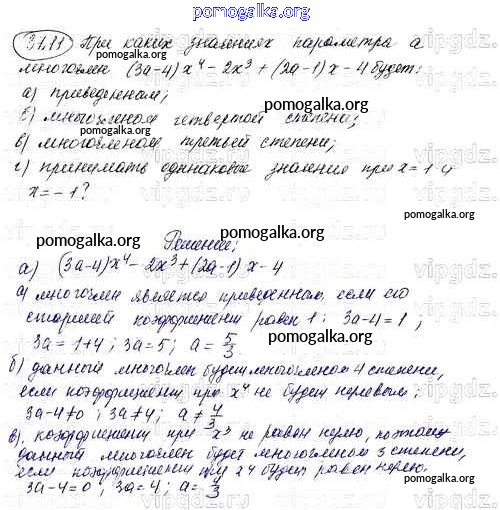 pomogalka.org
31.11 При каких значениях параметра a
многочлен (3a-4)x⁴-2x³+(2a-1)x-4 будет:
а) приведенным;
б) многочленом четвертой степени;
pomogalka.org
в) многочленом третьей степени;
г) принимать одинаковые значения при x=1 и
x=-1?
pomogalka.org
pomogalka.org
Решение:
а) (3a-4)x⁴-2x³+(2a-1)x-4
а) многочлен является приведенным, если его
старший коэффициент равен 1: 3a-4=1;
3a=1+4; 3a=5; a=5/3.
pomogalka.org
б) данный многочлен будет многочленом 4 степени,
если коэффициент при x⁴ не будет нулевым;
3a-4≠0; 3a≠4; a≠4/3
pomogalka.org
в). коэффициент при x³ не равен нулю, поэтому
данный многочлен будет многочленом 3 степени,
если коэффициент при x4 будет равен нулю.
3a-4=0; 3a=4; a=4/3
vipgdz.
vipgdz.
vipgdz.
vipgdz.
vipgdz.
vipgdz.